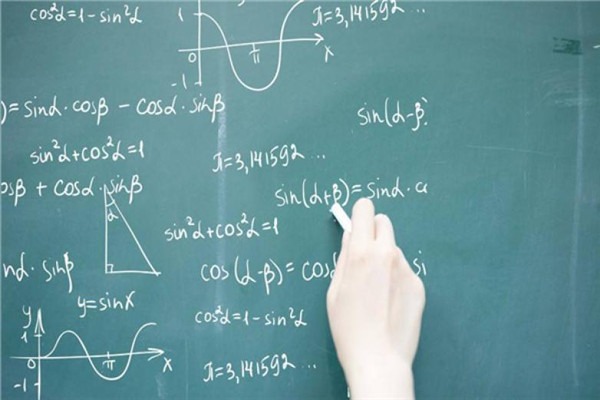 cos²α=1-sin²α
1
π=3,141592 ...
0
π
x
-1
)=sinα·cosβ-cosα·sinβ
sin(α-β)
sin²α+cos²α=1
π=3,141592 ...
osβ+cosα·sinβ
sin(α+β)=sinα·c
α
sin²α+cos²α=1
nα·sinβ
cos(α-β)=cos
si
y
y=sinx
1
cos²α=1-sin²α
0
π
x
-1
π=3,141592 ...